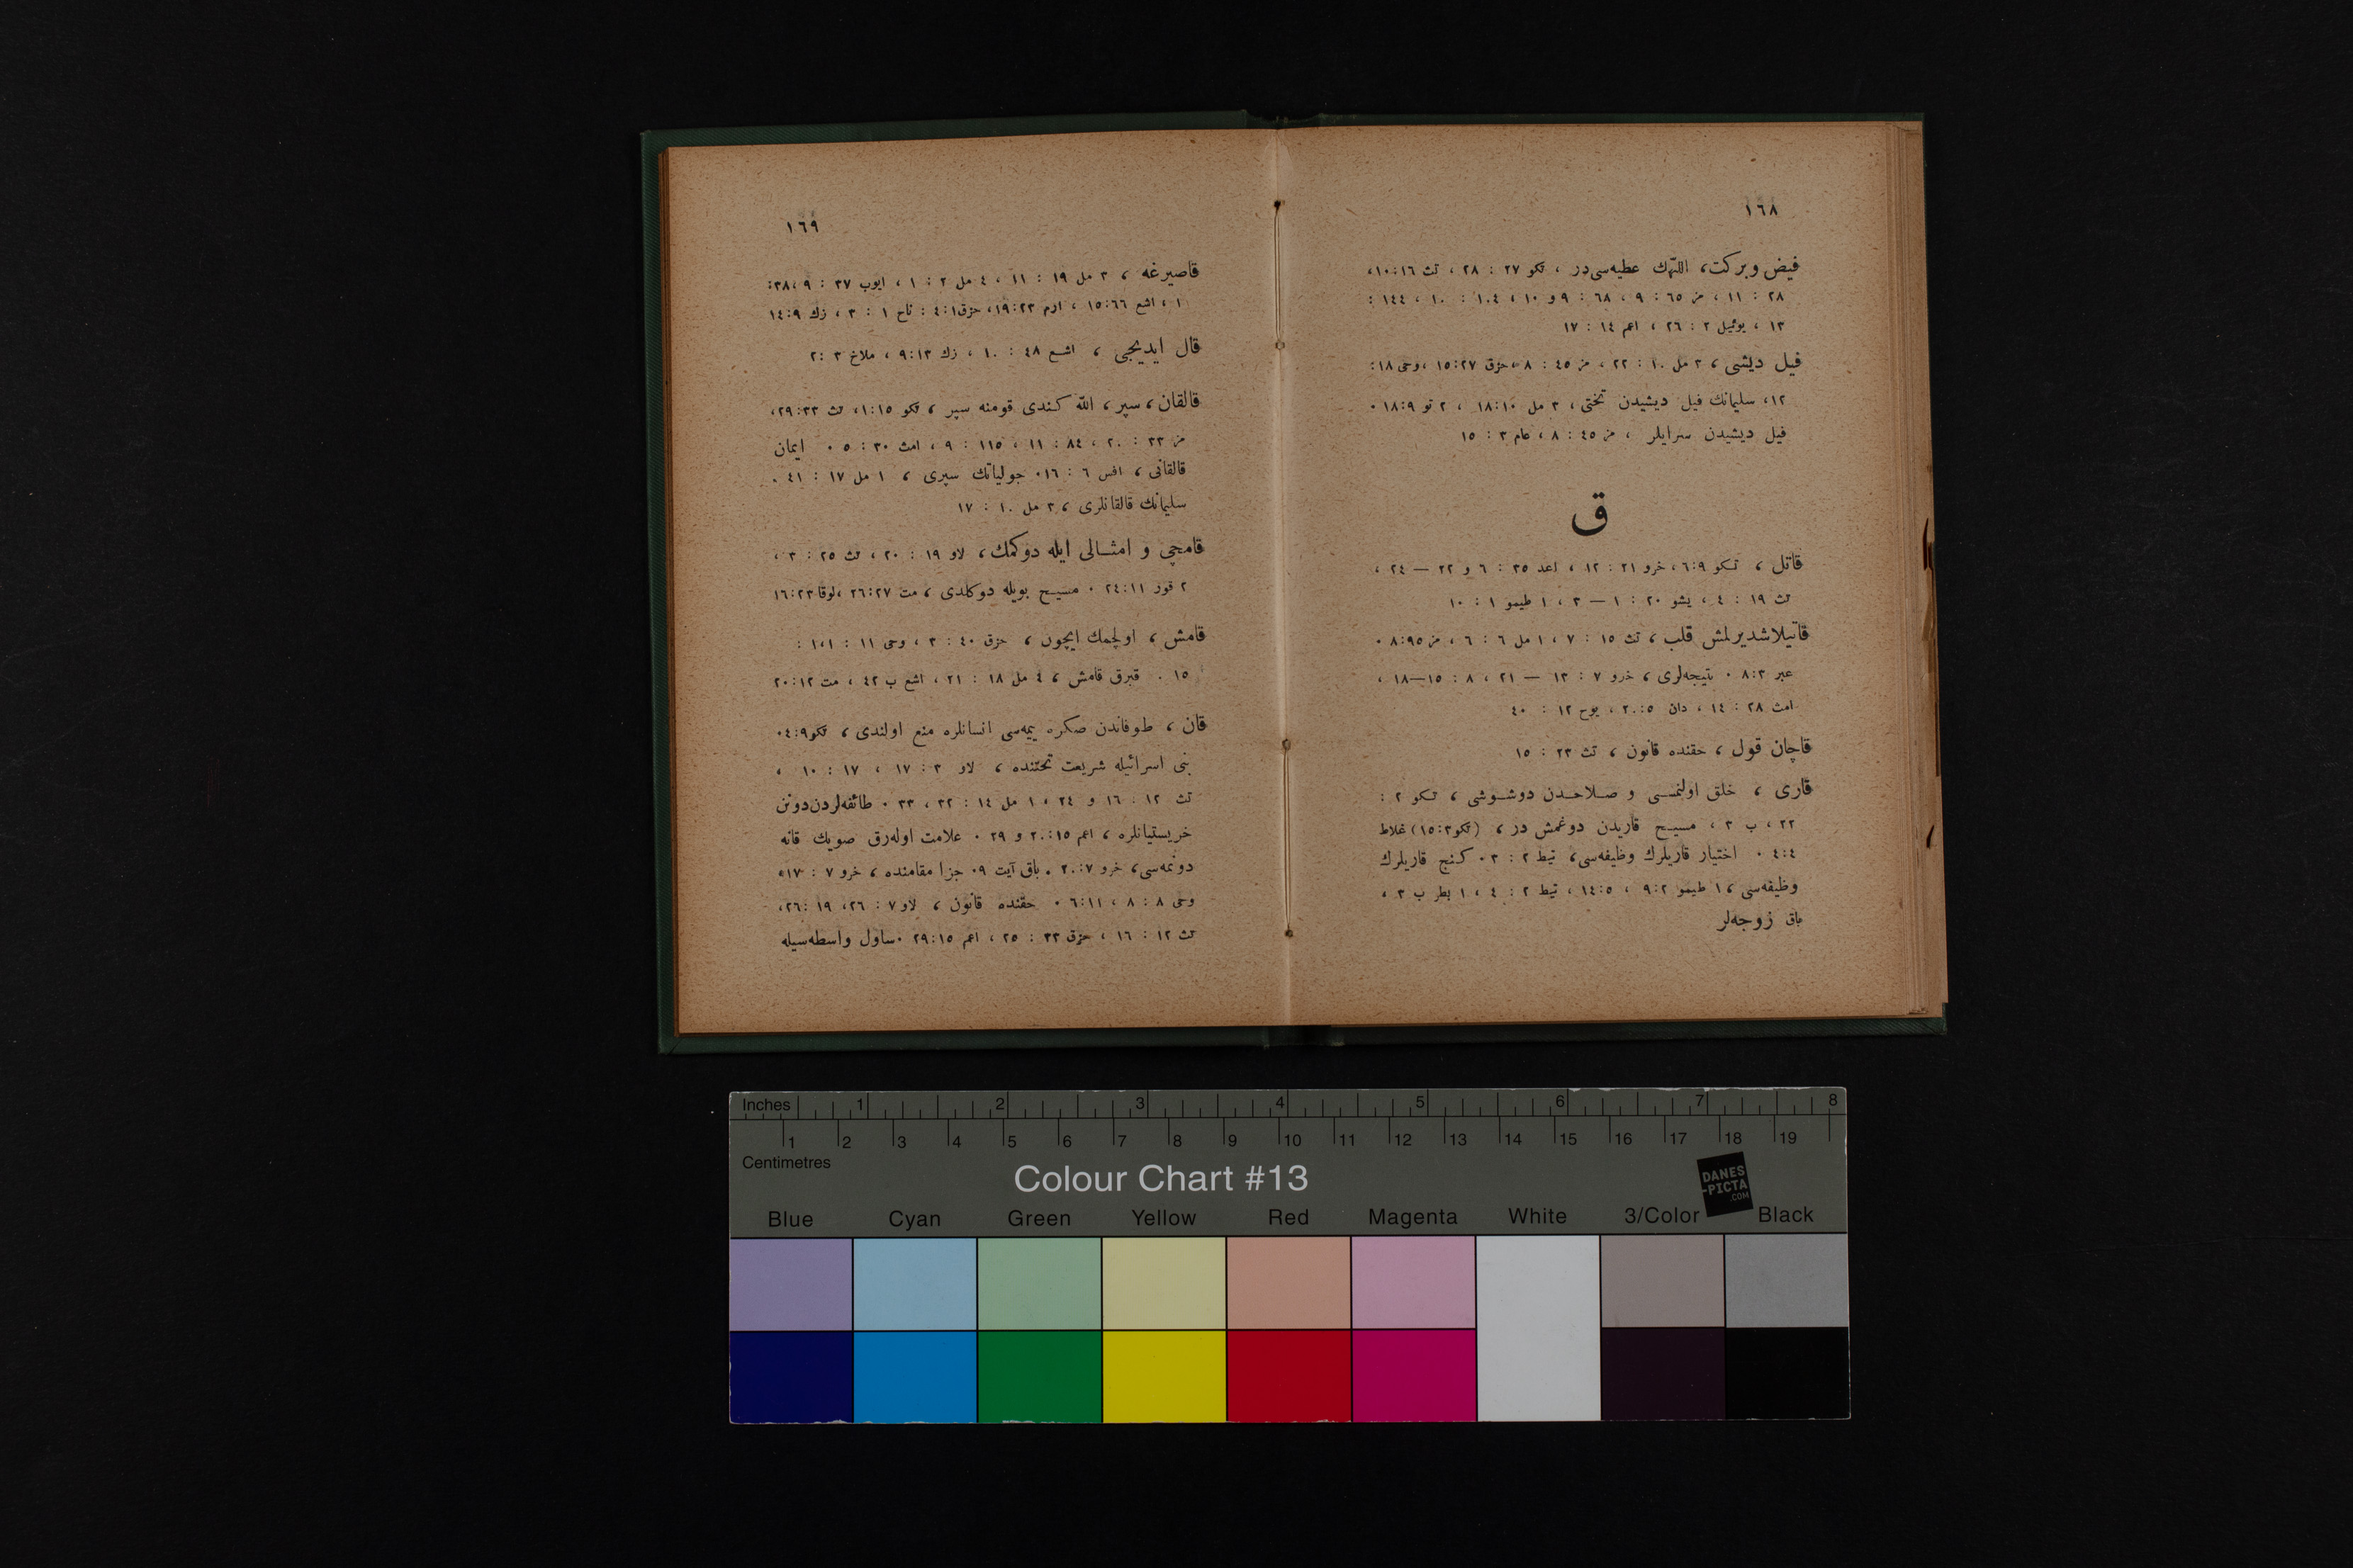 ١٦٨
فيض وبركت، اللّٰهك عطيه‌سى‌در ، تكو ٢٧ : ٢٨ ، تث ١٦:١٠،
٢٨ : ١١ ، مز ٦٥ : ٩ ، ٦٨ : ٩ و ١٠ ، ١٠٤ : ١٠ ، ١٤٤ :
١٣ ، يوئيل ٢ : ٢٦ ، اعم ١٤ : ١٧
فيل ديشى ، ٣ مل ١٠ : ٢٢ ، مز ٤٥ : ٨ ، حزق ٢٧:١٥ ، وحى ١٨:
١٢، سليمانك فيل ديشيدن تختى ، ٣ مل ١٠:١٨ ، ٢ تو ٩:١٨ ٠
فيل ديشيدن سرايلر ، مز ٤٥ : ٨ ، عام ٣ : ١٥
ق
قاتل ، تكو ٩:٦ ، خرو ٢١ : ١٢ ، اعد ٣٥ : ٦ و ٢٢ — ٢٤ ،
تث ١٩ : ٤ ، يشو ٢٠ : ١ — ٣ ، ١ طيمو ١ : ١٠
قاتيلاشديرلمش قلب ، تث ١٥ : ٧ ، ١ مل ٦ : ٦ ، مز ٩٥:٨ ٠
عبر ٣:٨ ٠ نتيجه‌لرى ، خرو ٧ : ١٣ — ٢١ ، ٨ : ١٥—١٨ ،
امث ٢٨ : ١٤ ، دان ٥:٢٠ ، يوح ١٢ : ٤٠
قاچان قول ، حقنده قانون ، تث ٢٣ : ١٥
قارى ، خلق اولنمسى و صلاحدن دوشوشى ، تكو ٢ :
٢٢ ، ب ٣ ، مسيح قاريدن دوغمش در ، (تكو٣:١٥) غلاط
٤:٤ ٠ اختيار قاريلرك وظيفه‌سى، تيط ٢ : ٣ ٠ كنج قاريلرك
وظيفه‌سى ، ١ طيمو ٢:٩ ، ٥:١٤ ، تيط ٢ : ٤ ، ١ بطر ب ٣ ،
باق زوجه‌لر
١٦٩
قاصيرغه ، ٣ مل ١٩ : ١١ ، ٤ مل ٢ : ١ ، ايوب ٣٧ : ٩ ،٣٨:
١ ، اشع ٦٦:١٥ ، ارم ٢٣:١٩، حزق١:٤ : ناح ١ : ٣ ، زك ٩:١٤
قال ايديجى ، اشع ٤٨ : ١٠ ، زك ١٣:٩ ، ملاخ ٣ :٢
قالقان ، سپر ، اللّٰه كندى قومنه سپر ، تكو ١٥:١، تث ٣٣:٢٩،
مز ٣٣ : ٢٠ ، ٨٤ : ١١ ، ١١٥ : ٩ ، امث ٣٠ : ٥ ٠ ايمان
قالقانى ، افس ٦ : ١٦ ٠ جولياتك سپرى ، ١ مل ١٧ : ٤١ ٠
سليمانك قالقانلرى ، ٣ مل ١٠ : ١٧
قامچى و امثالى ايله دوكمك ، لاو ١٩ : ٢٠ ، تث ٢٥ : ٣ ،
٢ قور ١١:٢٤ ٠ مسيح بويله دوكلدى ، مت ٢٧:٢٦ ،لوقا٢٣:١٦
قامش ، اولچمك ايچون ، حزق ٤٠ : ٣ ، وحى ١١ : ١،١ :
١٥ ٠ قيرق قامش ، ٤ مل ١٨ : ٢١ ، اشع ب ٤٢ ، مت ١٢:٢٠
قان ، طوفاندن صكره ييمه‌سى انسانلره منع اولندى ، تكو٩:٤ ٠
بنى اسرائيله شريعت تحتنده ، لاو ٣ : ١٧ ، ١٧ : ١٠ ،
تث ١٢ : ١٦ و ٢٤ ، ١ مل ١٤ : ٣٢ ، ٣٣ ٠ طائفه‌لردن‌دونن
خريستيانلره ، اعم ١٥:٢٠ و ٢٩ ٠ علامت اوله‌رق صويك قانه
دونمه‌سى ، خرو ٧:٢٠ ٠ باق آيت ٩ ٠ جزا مقامنده ، خرو ٧ : ١٧،
وحى ٨ : ٨ ، ١١:٦ ٠ حقنده قانون ، لاو ٧ : ٢٦، ١٩ :٢٦،
تث ١٢ : ١٦ ، حزق ٣٣ : ٢٥ ، اعم ١٥:٢٩ ٠ساول واسطه‌سيله
Inches 1 2 3 4 5 6 7 8
1 2 3 4 5 6 7 8 9 10 11 12 13 14 15 16 17 18 19
Centimetres
Colour Chart #13
DANES
-PICTA
.COM
Blue Cyan Green Yellow Red Magenta White 3/Color Black